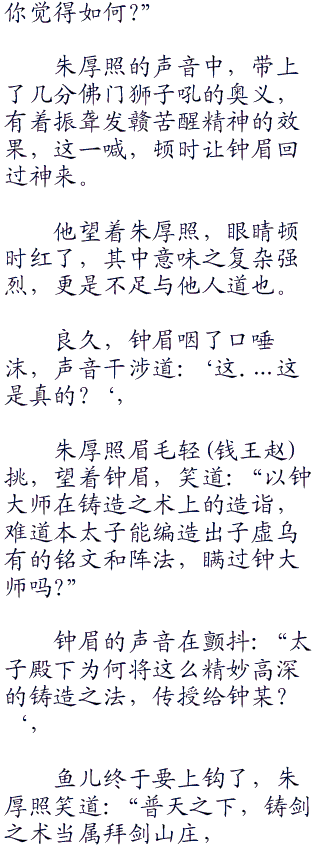 你觉得如何?”
朱厚照的声音中，带上
了几分佛门狮子吼的奥义，
有着振聋发赣苦醒精神的效
果，这一喊，顿时让钟眉回
过神来。
他望着朱厚照，眼睛顿
时红了，其中意味之复杂强
烈，更是不足与他人道也。
良久，钟眉咽了口唾
沫，声音干涉道：‘这....这
是真的？‘，
朱厚照眉毛轻(钱王赵)
挑，望着钟眉，笑道：“以钟
大师在铸造之术上的造诣，
难道本太子能编造出子虚乌
有的铭文和阵法，瞒过钟大
师吗?”
钟眉的声音在颤抖：“太
子殿下为何将这么精妙高深
的铸造之法，传授给钟某？
‘，
鱼儿终于要上钩了，朱
厚照笑道：“普天之下，铸剑
之术当属拜剑山庄，